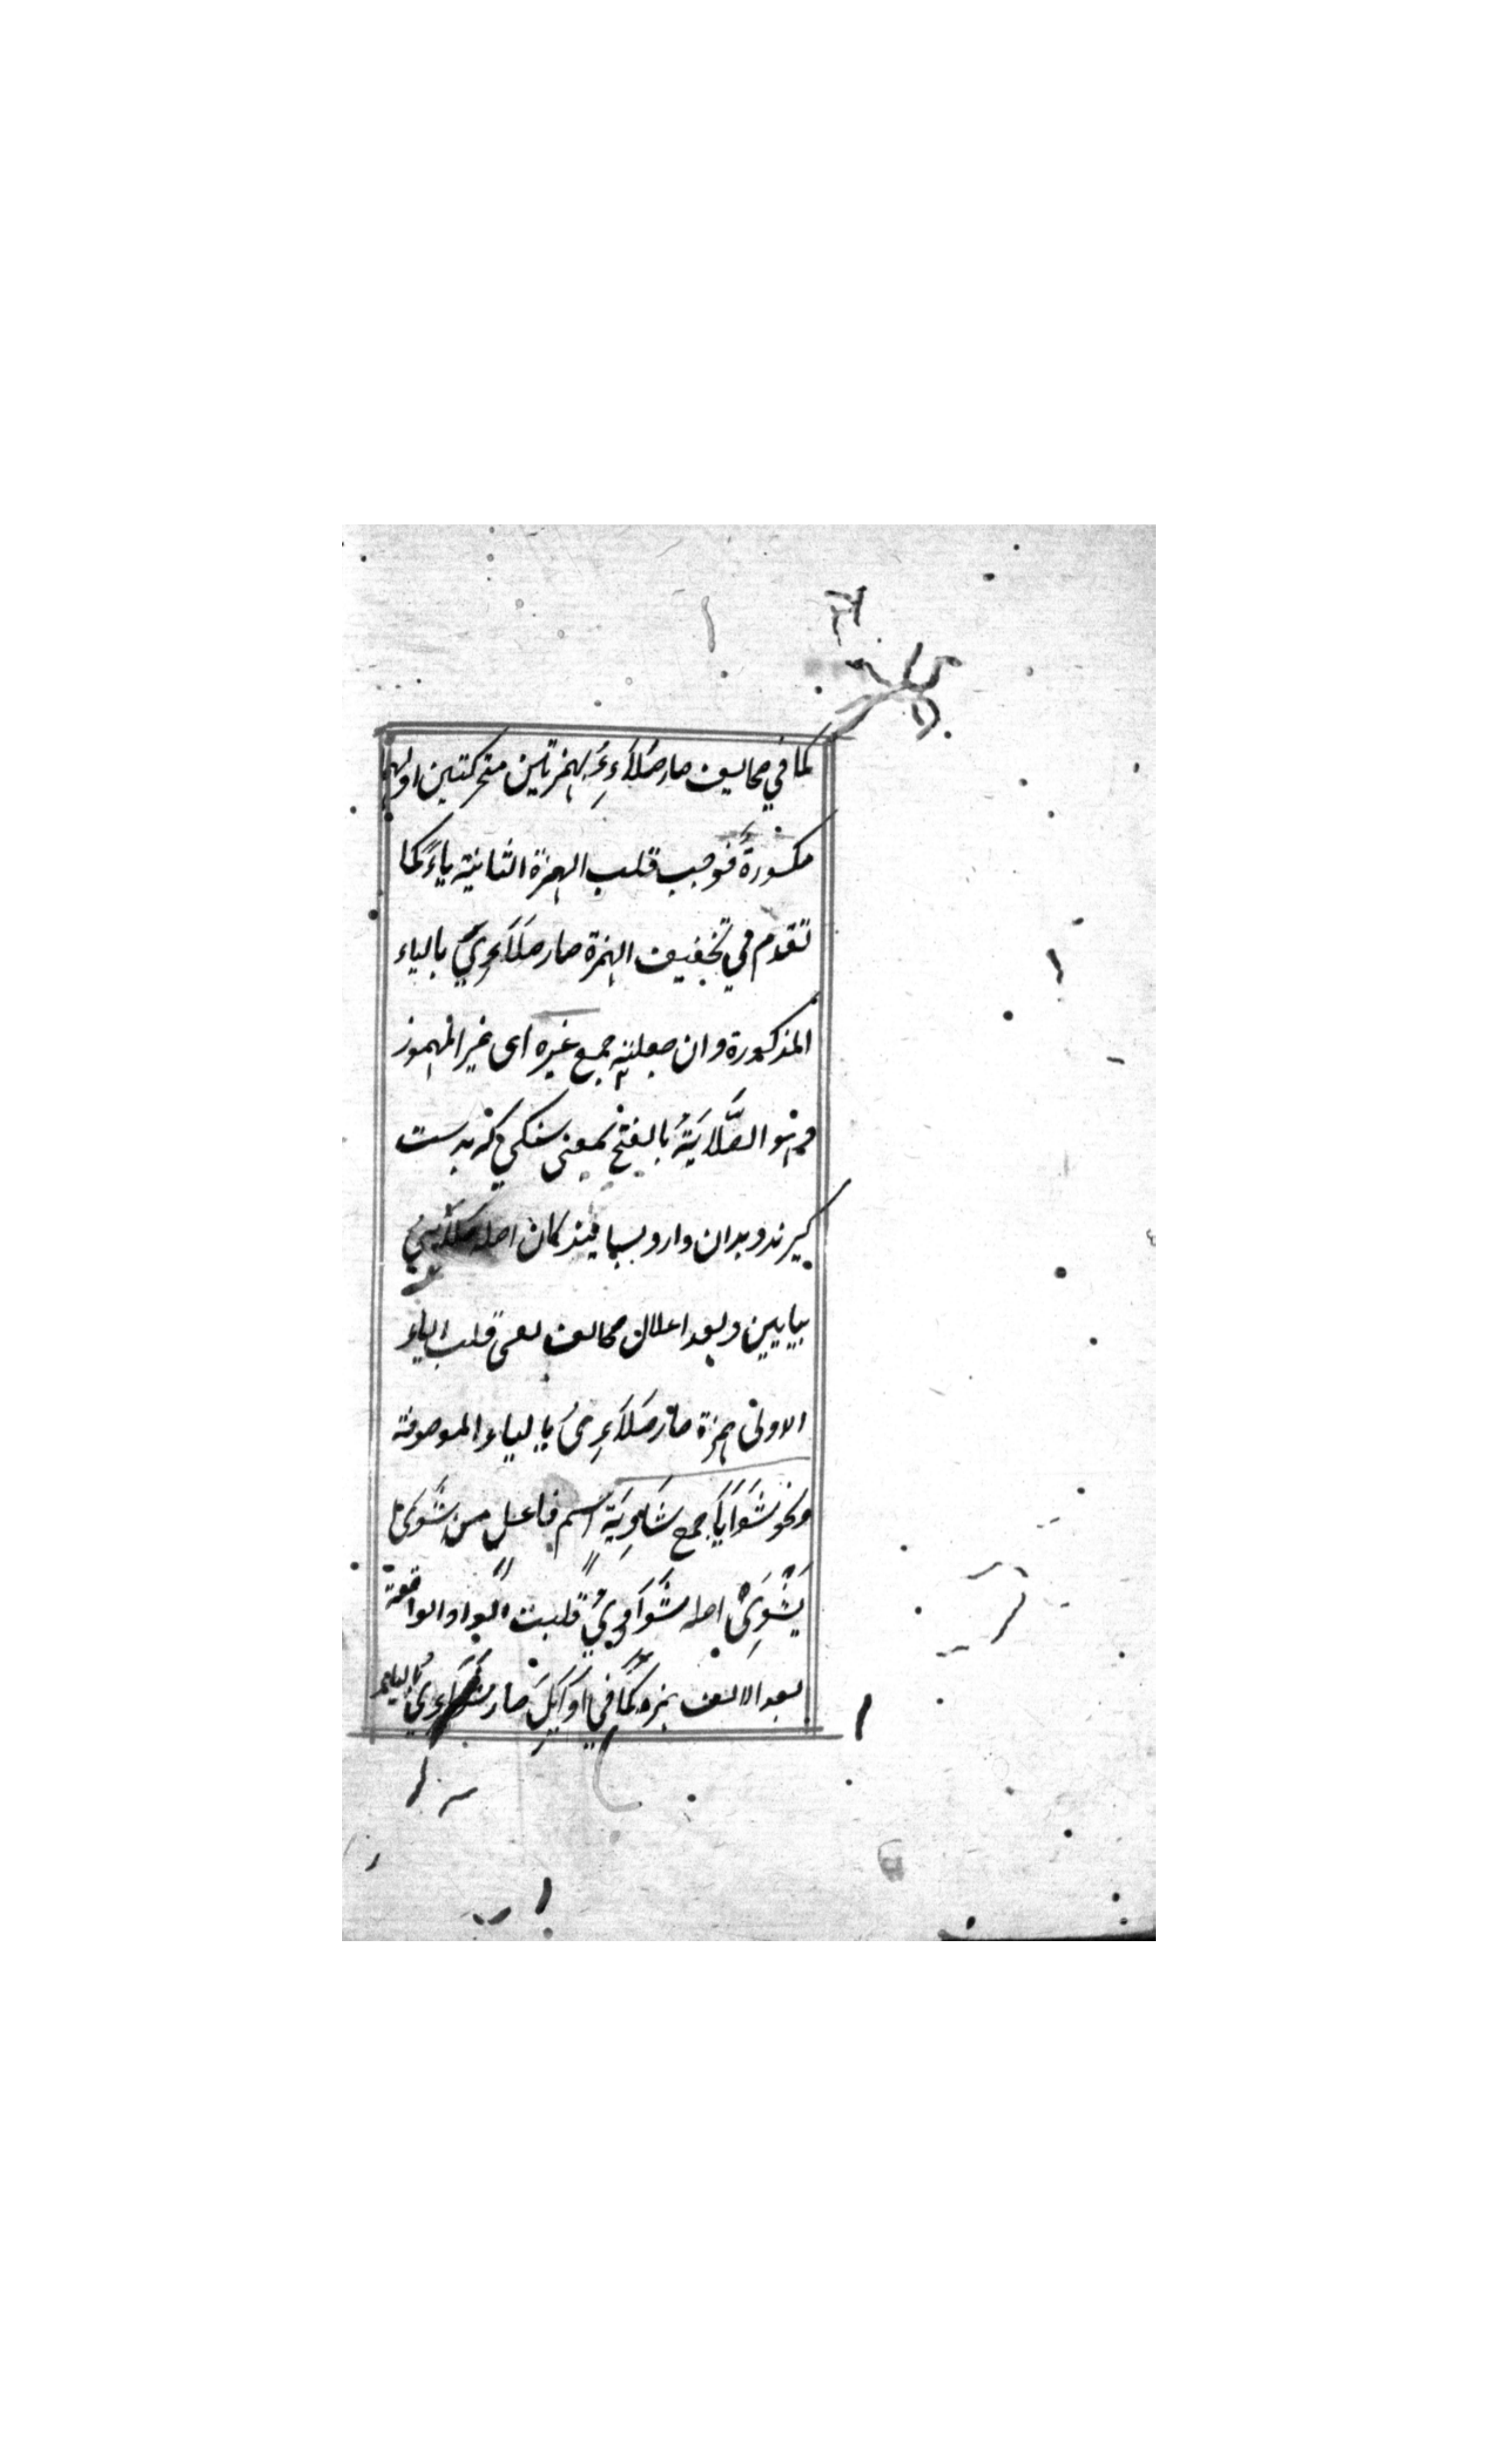 كما في صحايف صار صَلَاءِءُ بهمزتين متحركتين اوليهما
مكسورةً فوجب قلب الهمزة الثانية ياءً كما
تقدم في تخفيف الهمزة صار صَلَاءِيُ بالياء
المذكورة وان جعلته جمع غيره اى غير المهموز
وهو الصَّلَايَةُ بالفتح بمعنى سنكي كه بدست
كيرند وبدان دارو بسايند كان اصله صَلَايِيُ
بيايين وبعد اعلال صحايف اعنى قلب الياء
الاولى همزة صار صَلَاءِىُ بالياء الموصوفة
ونحو شَوَايَا جمع شَاوِيَةٍ اسم فاعلٍ من شَوَىٰ
يَشْوِىْ اصله شَوَاوِيُ قلبت الواو الواقعة
بعد الالف همزه كَما في اَوَايِلَ صار شَوَاءِيُ بالياء